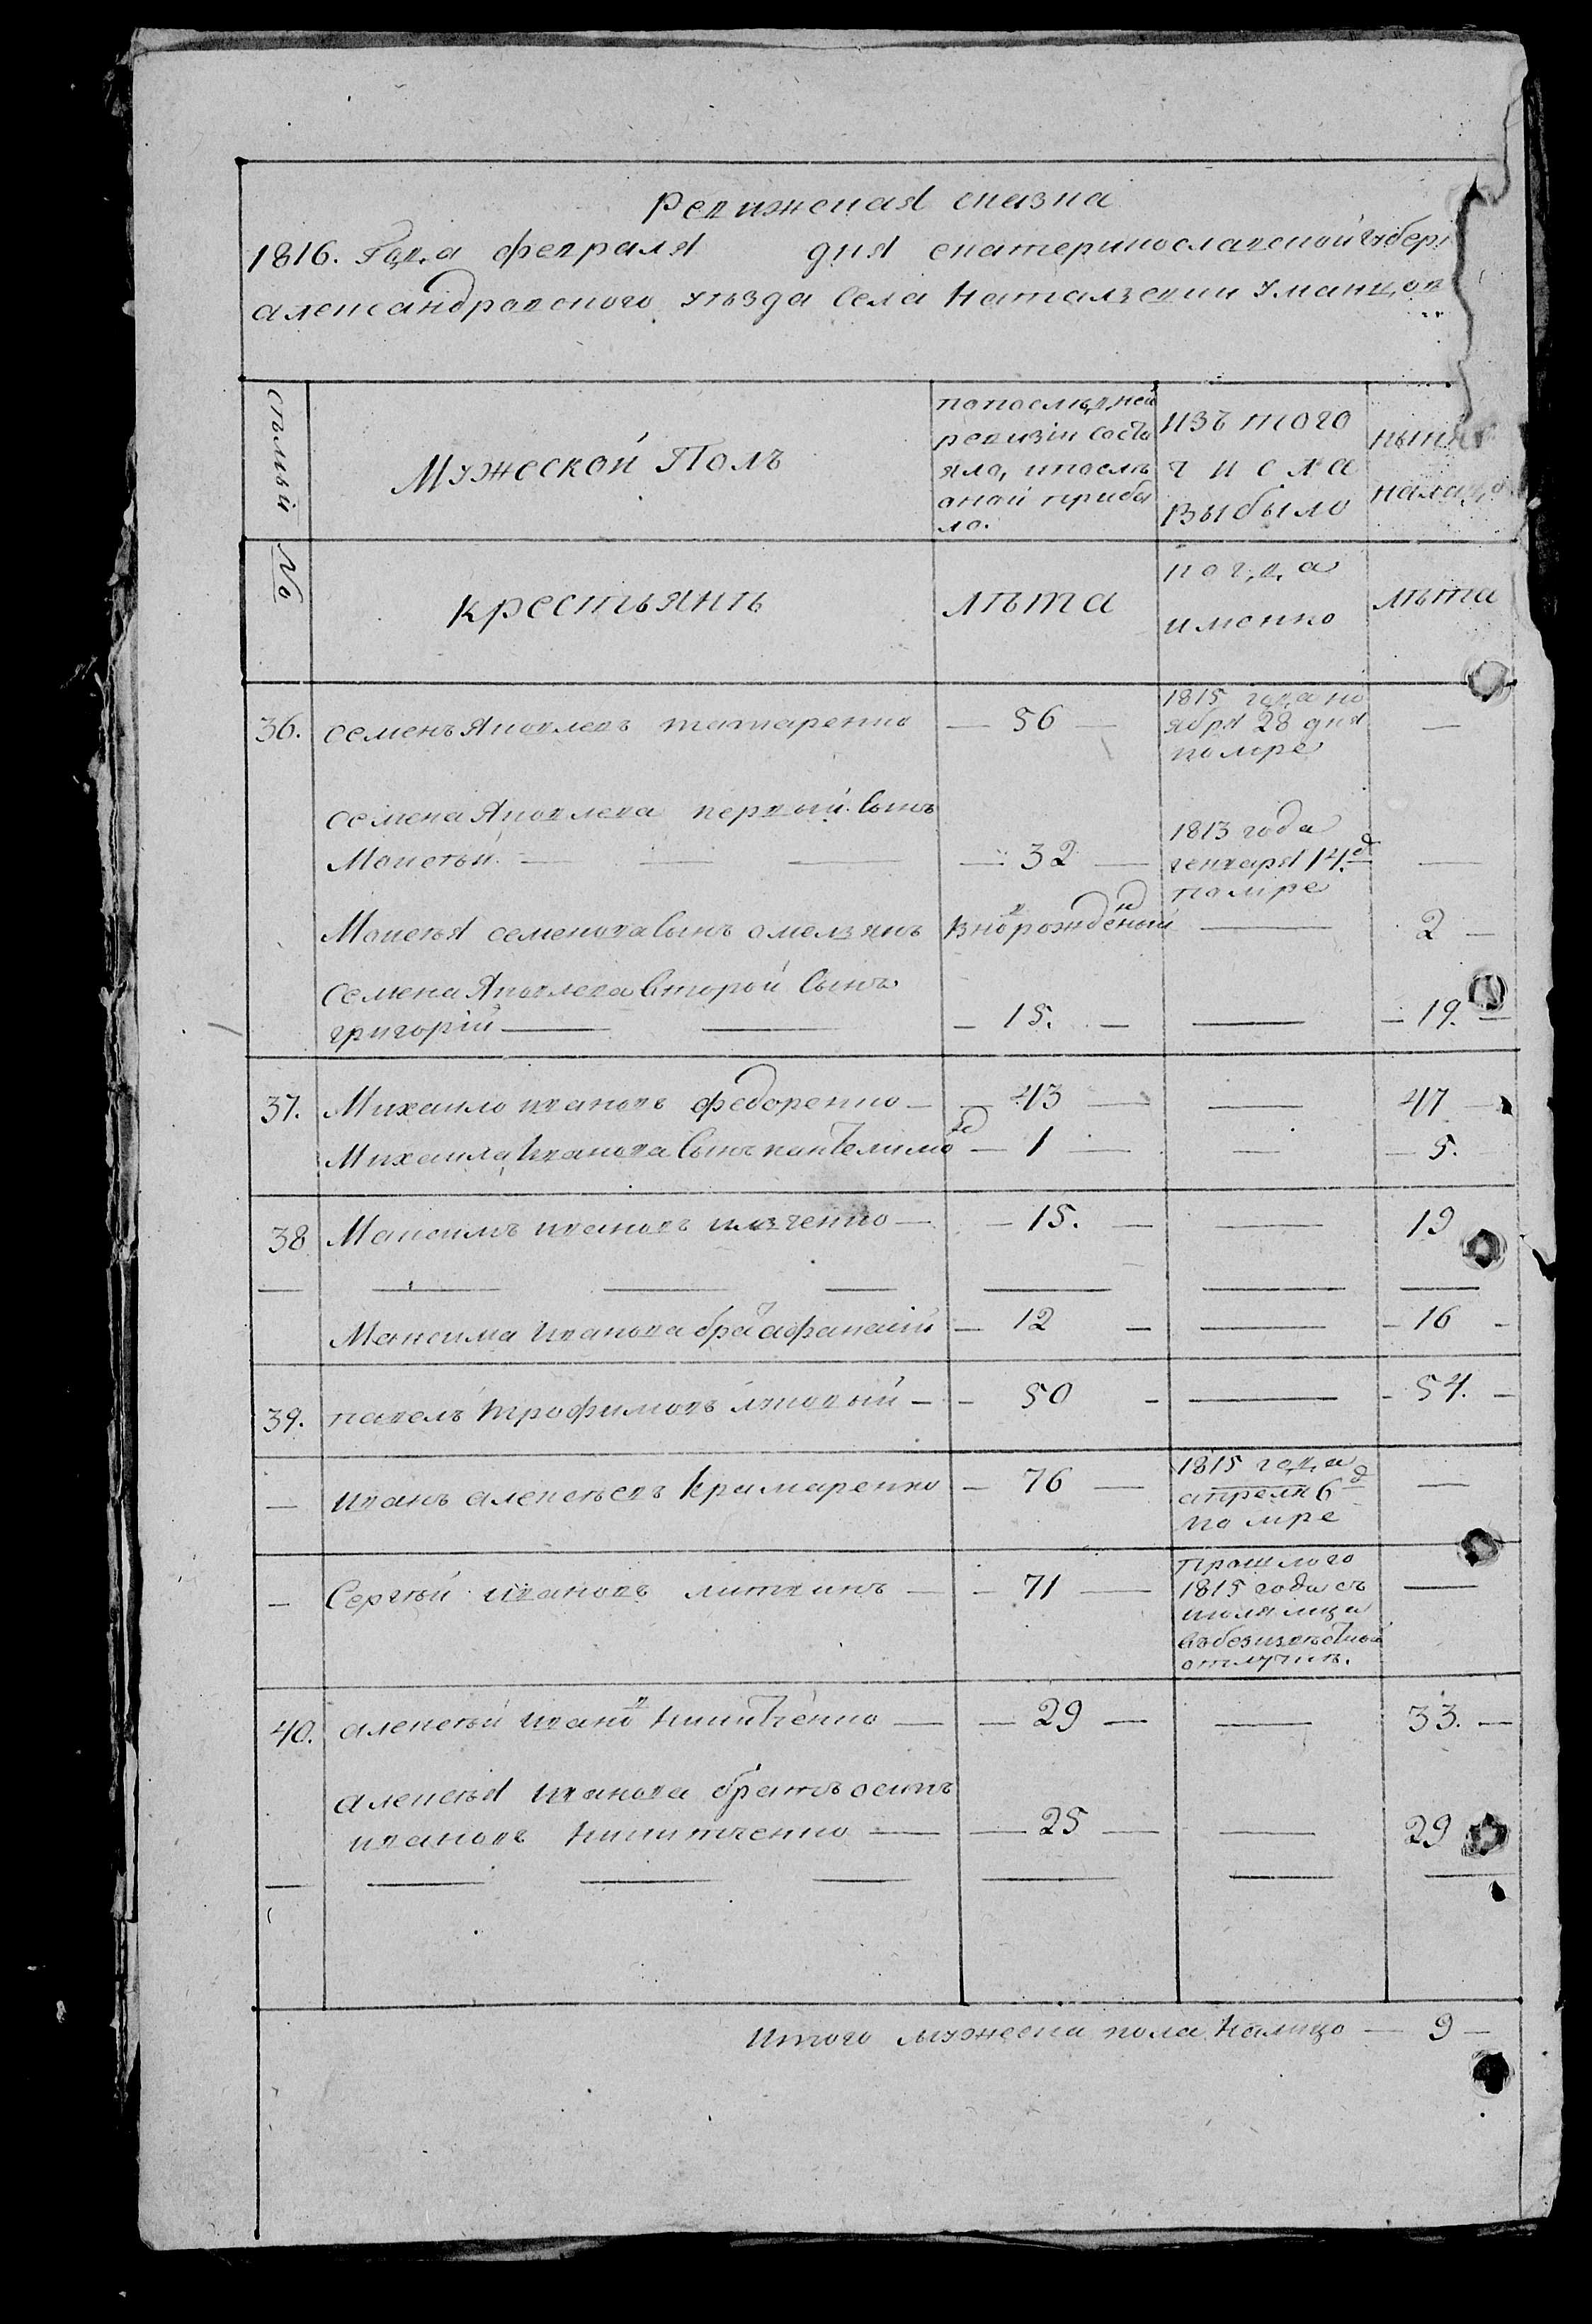 Ревижская сказка
1816. Года февраля дня екатеринославской губер
александровского уъзда Села Натальевки Уманцов
семьи
№
Мужеской Полъ
попослѣдней
ревизіи состо
яло, ипослѣ
оной прибы
ло.
изъ того
числа
выбыло
нынѣ
налицо
крестьянъ
лѣта
когда
именно
лѣта
36. семенъ Яковлевъ татаренко — 56 —
1815 года но
ября 28 дня
помре
—
семена Яковлева первый Сынъ
Моисѣй — — — — 32 —
1813 года
генваря 14. д
помре
—
Моисѣя семенова Сынъ омельянъ вноворожденный — 2 —
Семена Яковлева второй Сынъ
григорій — — — 15. — — — 19. —
37. Михаило ивановъ федоренко — — 43 — — 47 —
Михаила Иванова Сынъ пантелимо — 1 — — — 5.
38 Максимъ ивановъ — — 15. — — 19
— — — — — — —
Максима Иванова братъ афанасій — 12 — — — 16 —
39. павелъ трофимовъ — — 50 — — — 54. —
— иванъ алексѣевъ Крамаренко — 76 —
1815 года
апреля 6 д
помре
—
— Сергѣй ивановъ литвинъ — — 71 —
прошлого
1815 года съ
июля мца
въбезизвѣстной
отлучкѣ.
—
40. алексѣй ивановъ Никитченко — — 29 — — 33. —
алексѣя иванова братъ осипъ
ивановъ Никитченко — — 25 — — 29
— — — — — — —
Итого мужеска пола налицо — 9 —